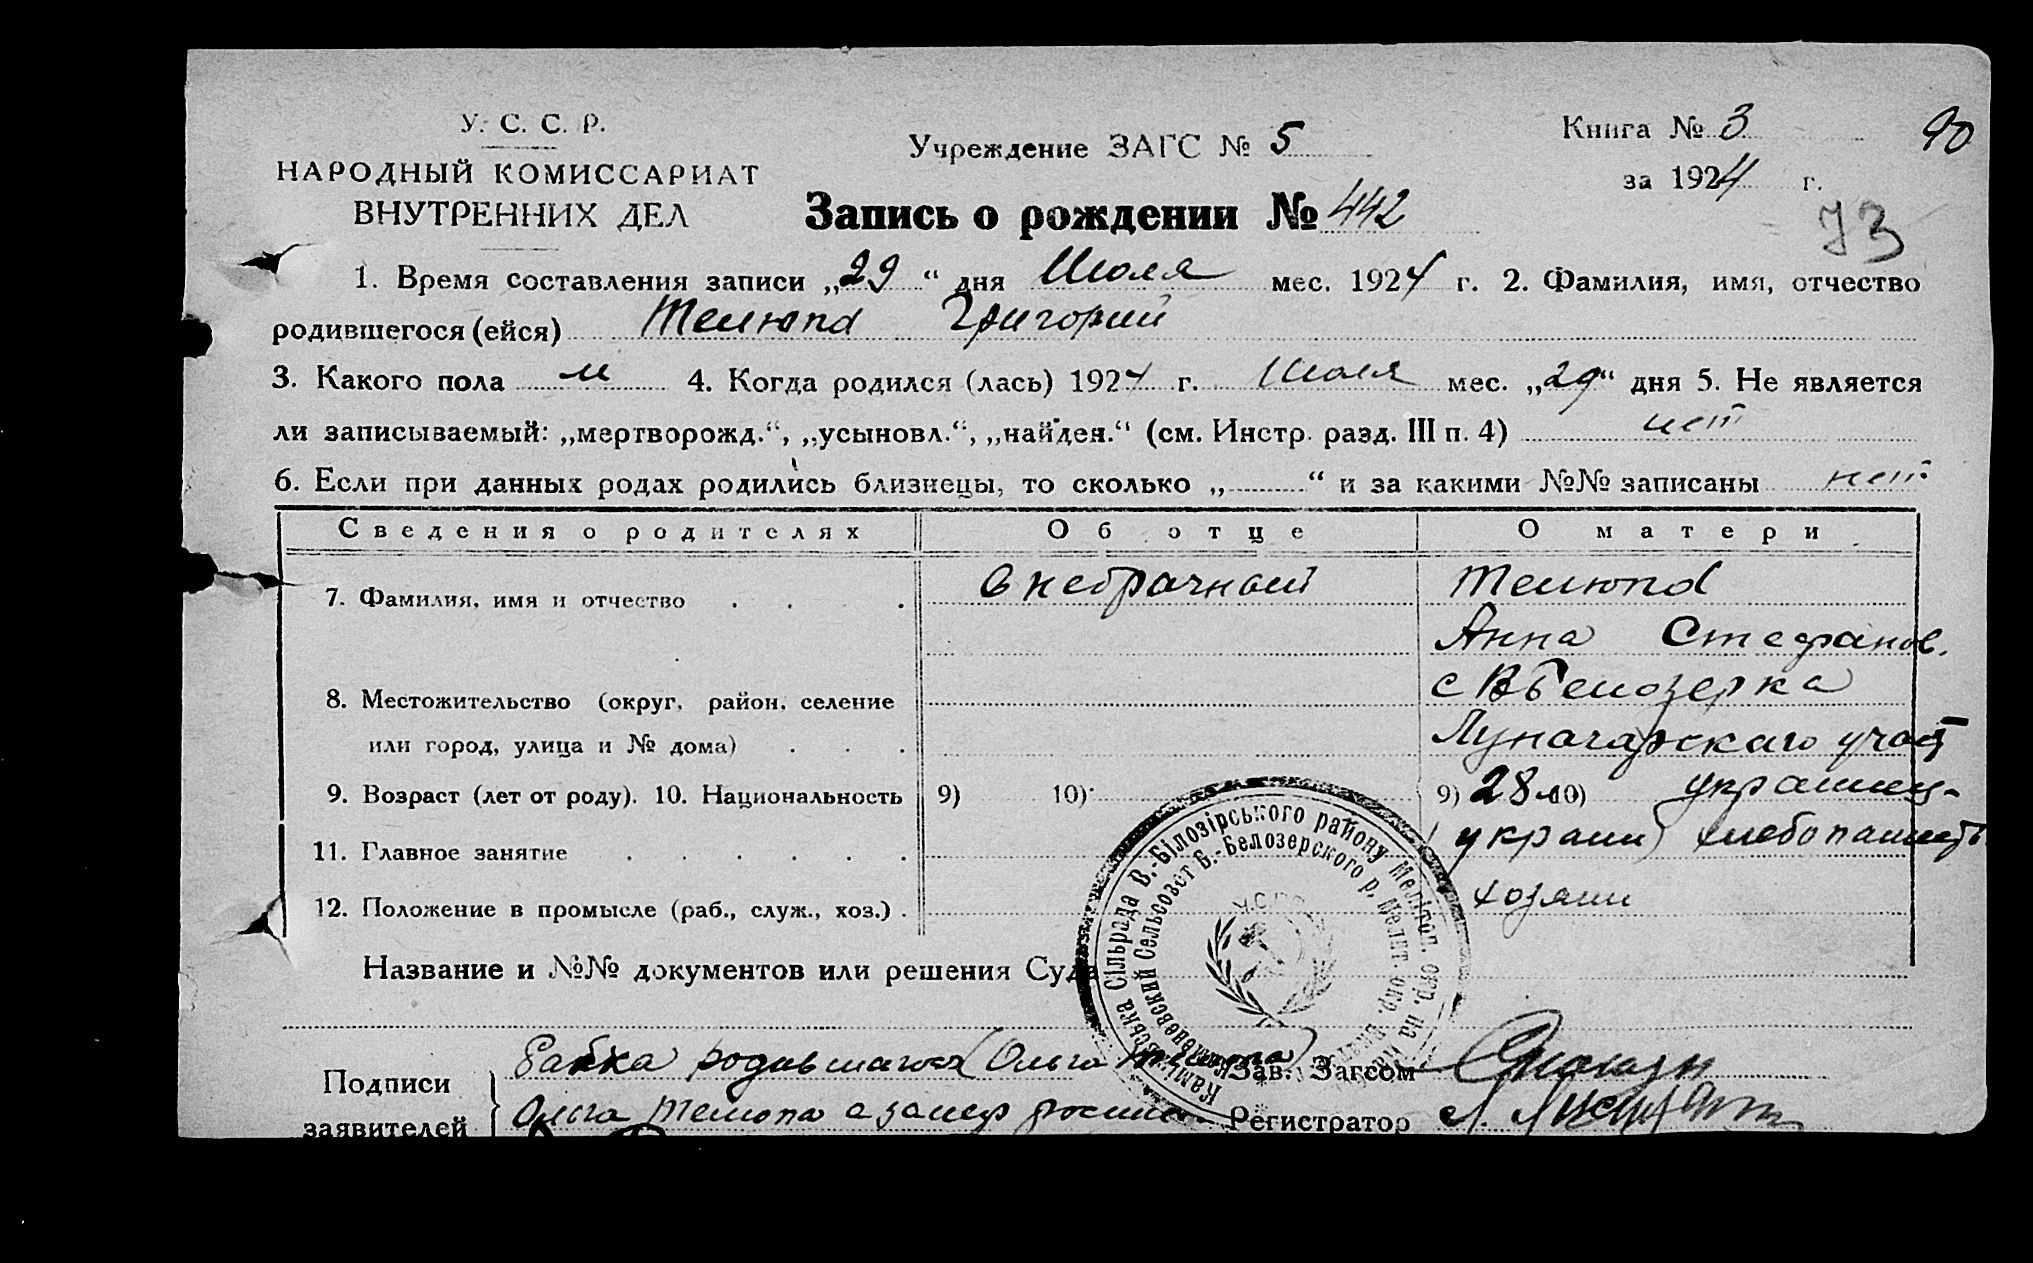 У. С. С. Р.
НАРОДНЫЙ КОМИССАРИАТ
ВНУТРЕННИХ ДЕЛ
Учреждение ЗАГС № 5
Книга № 3
за 1924 г.
90
73
Запись о рождении № 442
1. Время составления записи „29“ дня Июля мес. 1924 г. 2. Фамилия, имя, отчество
родившегося (ейся) Телюпа Григорий
3. Какого пола м 4. Когда родился (лась) 1924 г. Июля мес. „29“ дня 5. Не является
ли записываемый: „мертворожд.“, „усыновл.“, „найден.“ (см. Инстр. разд. III п. 4) нет
6. Если при данных родах родились близнецы, то сколько „..........“ и за какими №№ записаны нет
Сведения о родителях Об отце О матери
7. Фамилия, имя и отчество внебрачный Телюпа
Анна Стефанов.
8. Местожительство (округ, район, селение с В Белозерка
или город, улица и № дома) Луначарскаго учас
9. Возраст (лет от роду). 10. Национальность 9) 10) 9) 28 10) украинц-
11. Главное занятие украин хлебопашеств
12. Положение в промысле (раб., служ., хоз.) хозяин
Название и №№ документов или решения Суда
Кам ська Сільрада В.-Білозірського району Мелітоп. окр. на
Каменевский Сельсовет В.-Белозерского р. Мелит. окр.
УСРР
Подписи
заявителей
Бабка родившагося (Ольга Телюпа)
Ольга Телюпа а за нея
Зав. Загсом
Регистратор